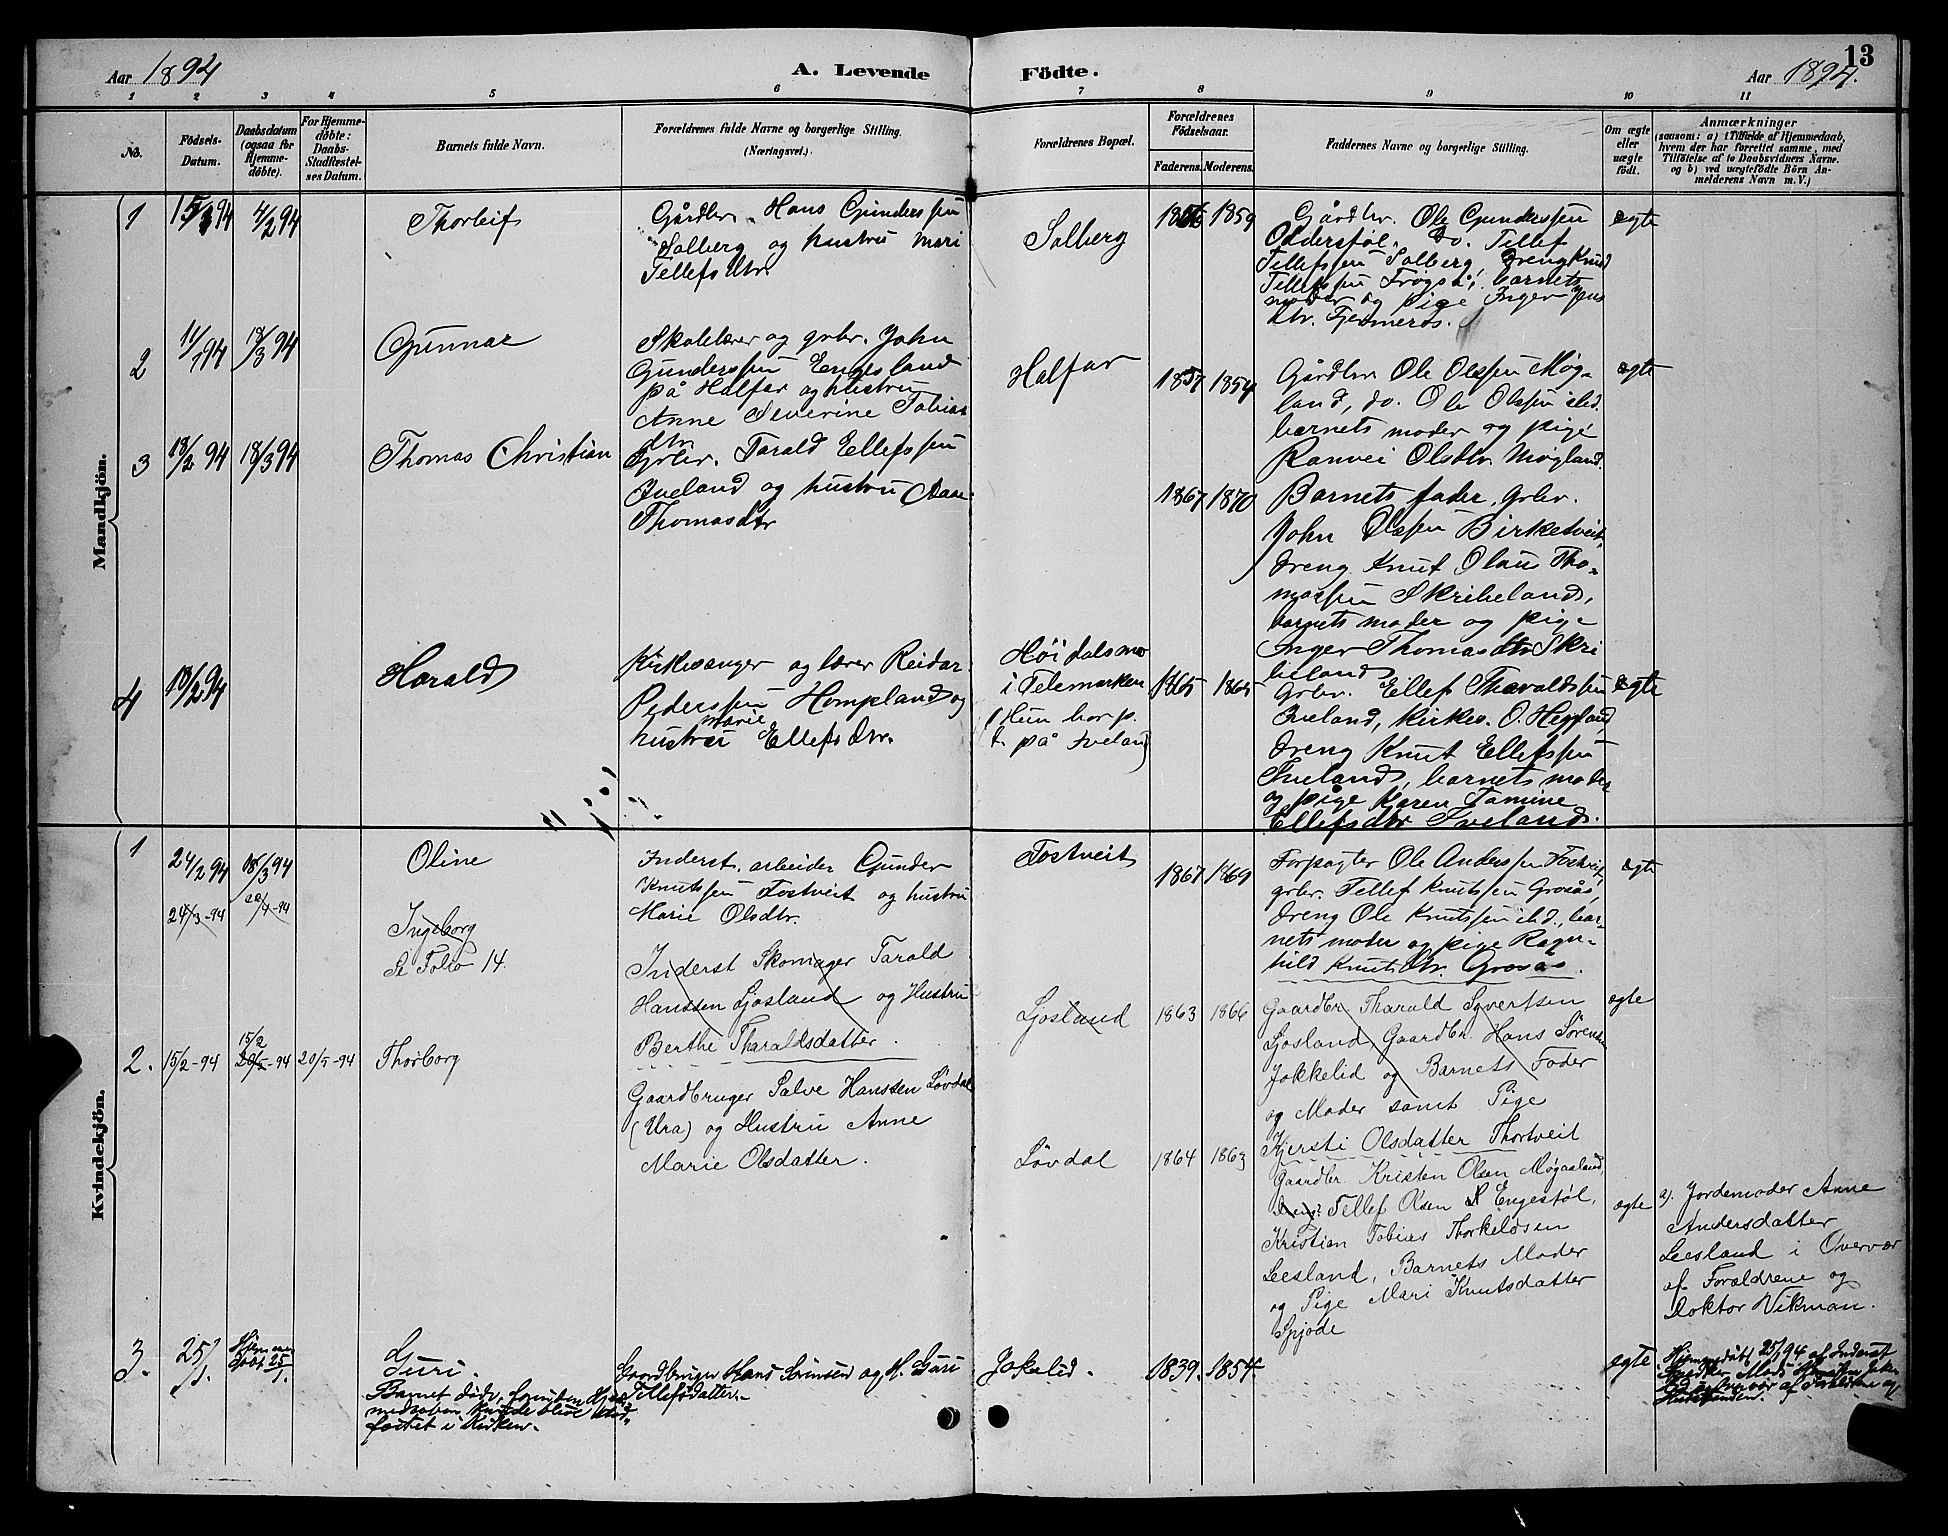 Aar 1894
A. Levende Födte.
Aar 1894.
13
1 2 3 4 5 6 7 8 9 10 11
No.
Födsels-Datum.
Daabsdatum (ogsaa for Hjemme-döbte).
For Hjemme-döbte: Daabs-Stadfæstel-ses Datum.
Barnets fulde Navn.
Forældrenes fulde Navne og borgerlige Stilling. (Næringsvei.)
Forældrenes Bopæl.
Forældrenes Födselsaar.
Faderens. Moderens.
Faddernes Navne og borgerlige Stilling.
Om ægte eller uægte födt.
Anmærkninger
(saasom: a) i Tilfælde af Hjemmedaab,
hvem der har forrettet samme, med
Tilföielse af to Daabsvidners Navne.
og b) ved uægtefödte Börn An-
melderens Navn m. V.)
Mandkjön.
1 15/1 94 4/2 94 Thorleif
Gårdbr. Hans Gunderssen
Solberg og hustru Mari
Tellefsdtr.
Solberg
1859
Gårdbr. Ole Gunderssen
Oddersføl. Do. Tellef
Tellefssen Solberg, Dreng Knud
Tellefssen Frøyså, barnets
moder og pige Inger
dtr.
ægte
2 11/1 94 18/3 94 Gunnar
Skolelærer og grbr. John
Gunderssen Engesland
på Halfar og hustru
Anne Severine Tobias
dtr.
Halfar
1857 1854
Gårdbr Ole Olssen Møg-
land, do. Ole Olssen ibd.
barnets moder og pige
Ranvei Olsdtr. Møgland.
ægte
3 18/2 94 18/3 94 Thomas Christian
Grbr. Tarald Ellefssen
Iveland og hustru Aase
Thomasdtr
1867 1870
Barnets fader, Grbr.
John Olssen Birketveit,
dreng Knut Olaus Tho-
massen Skribeland,
barnets moder og pige
Inger Thomasdtr Skri
beland
4 18/2 94 Harald
Kirkesanger og lærer Reidar
Pederssen Hompland og
hustru Marie Ellefsdtr.
Høidalsmo
i Telemarken
(Hun bor p.
t. på Iveland)
1865 1865
Grbr. Ellef Tharaldssen
Iveland, kirkes. O. Hegland,
dreng Knut Ellefssen
Iveland, barnets moder
og pige Karen Tomine
Ellefsdtr Iveland.
ægte
Kvindekjön.
1 24/2 94 18/3 94 Oline
Inderst, arbeider Gunder
Knutssen Tostveit og hustru
Marie Olsdtr.
Tostveit
1867 1869
Forpagter Ole Anderssen Tostveit,
grbr. Tellef Knutssen Grosås,
dreng Ole Knutssen ibd., bar-
nets moder og pige Ragn-
hild Knutsdtr. Grosås.
ægte
24/3-94 20/4-94
Ingeborg
Se Folio 14.
Inderst Skomager Tarald
Hanssen Ljosland og Hustru
Berthe Tharaldsdatter.
Ljosland 1863 1866
Gaardbr. Tharald Syvertsen
Ljosland, Gaardbr. Hans Sörensen
Jokkelid og Barnets Fader
og Moder samt Pige
Kjersti Olsdatter Thortveit
ægte
2. 15/2-94 15/2 20/5-94 20/5-94 Thorborg
Gaardbruger Salve Hanssen Lövdal
(Ura) og Hustru Anne
Marie Olsdatter.
Lövdal 1864 1863
Gaardbr. Kristen Olsen Møgaaland,
Dreng Tellef Olsen Engestøl,
Kristian Tobias Thorkeldsen
Leesland, Barnets Moder
og Pige Mari Knutsdatter
Spjode
ægte
a). Jordemoder Anne
Andersdatter
Leesland i Overvær
af Forældrene og
Doktor Wikman.
3. 25/1 Hjemme döbt 25/1.
Guri.
Barnet döde, forinden Hjem-
medaaben kunde blive stad-
fæstet i Kirken.
Gaardbruger Hans Sörensen og H. Guri
Tellefsdatter.
Jokelid. 1839. 1854.
ægte
Hjemmedöbt 25/1 94 af Inderst